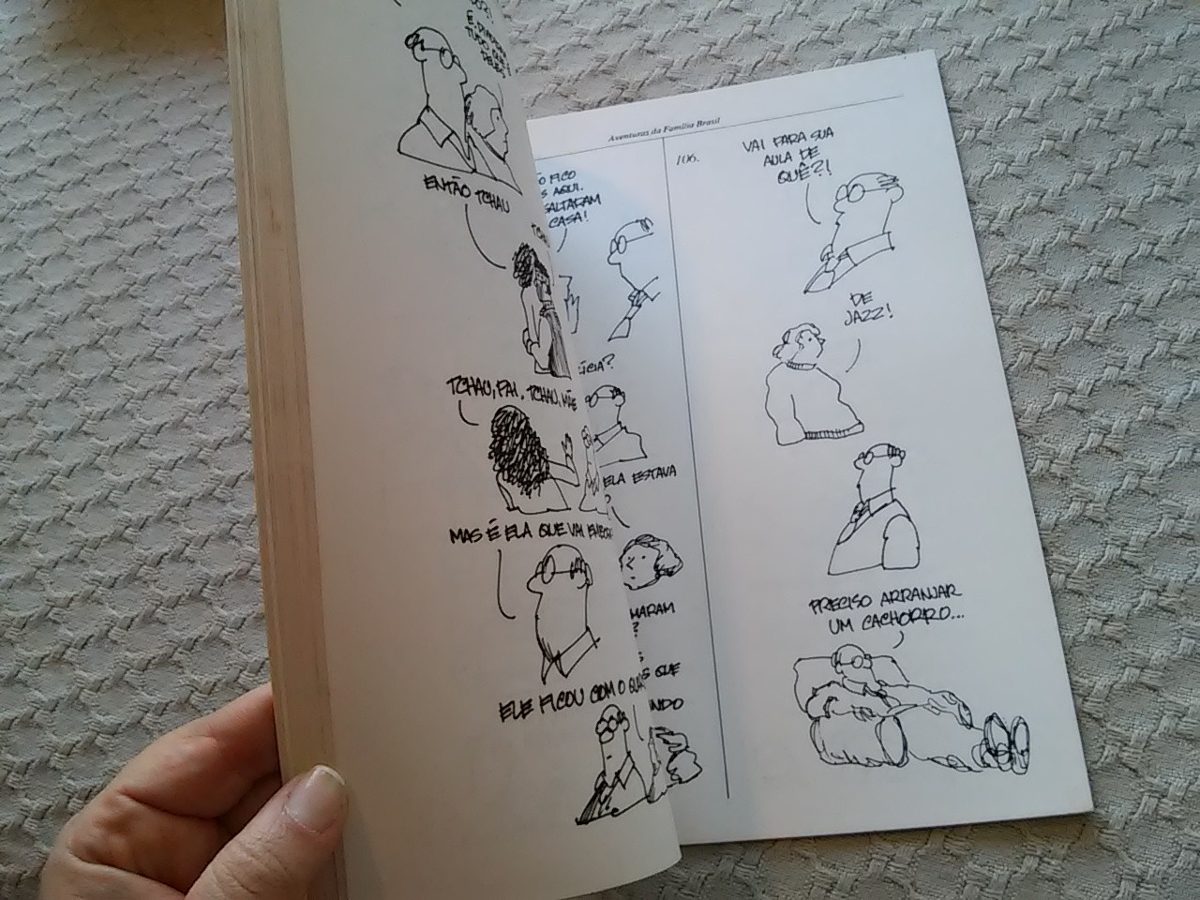 TUDO
ENTÃO TCHAU
TCHAU, PAI. TCHAU, MÃE
MAS É ELA QUE VAI
ELE FICOU COM O
Aventuras da Família Brasil
FICO
AQUI.
CASA!
ELA ESTAVA
QUE
106.
VAI PARA SUA
AULA DE
QUÊ?!
DE
JAZZ!
PRECISO ARRANJAR
UM CACHORRO...